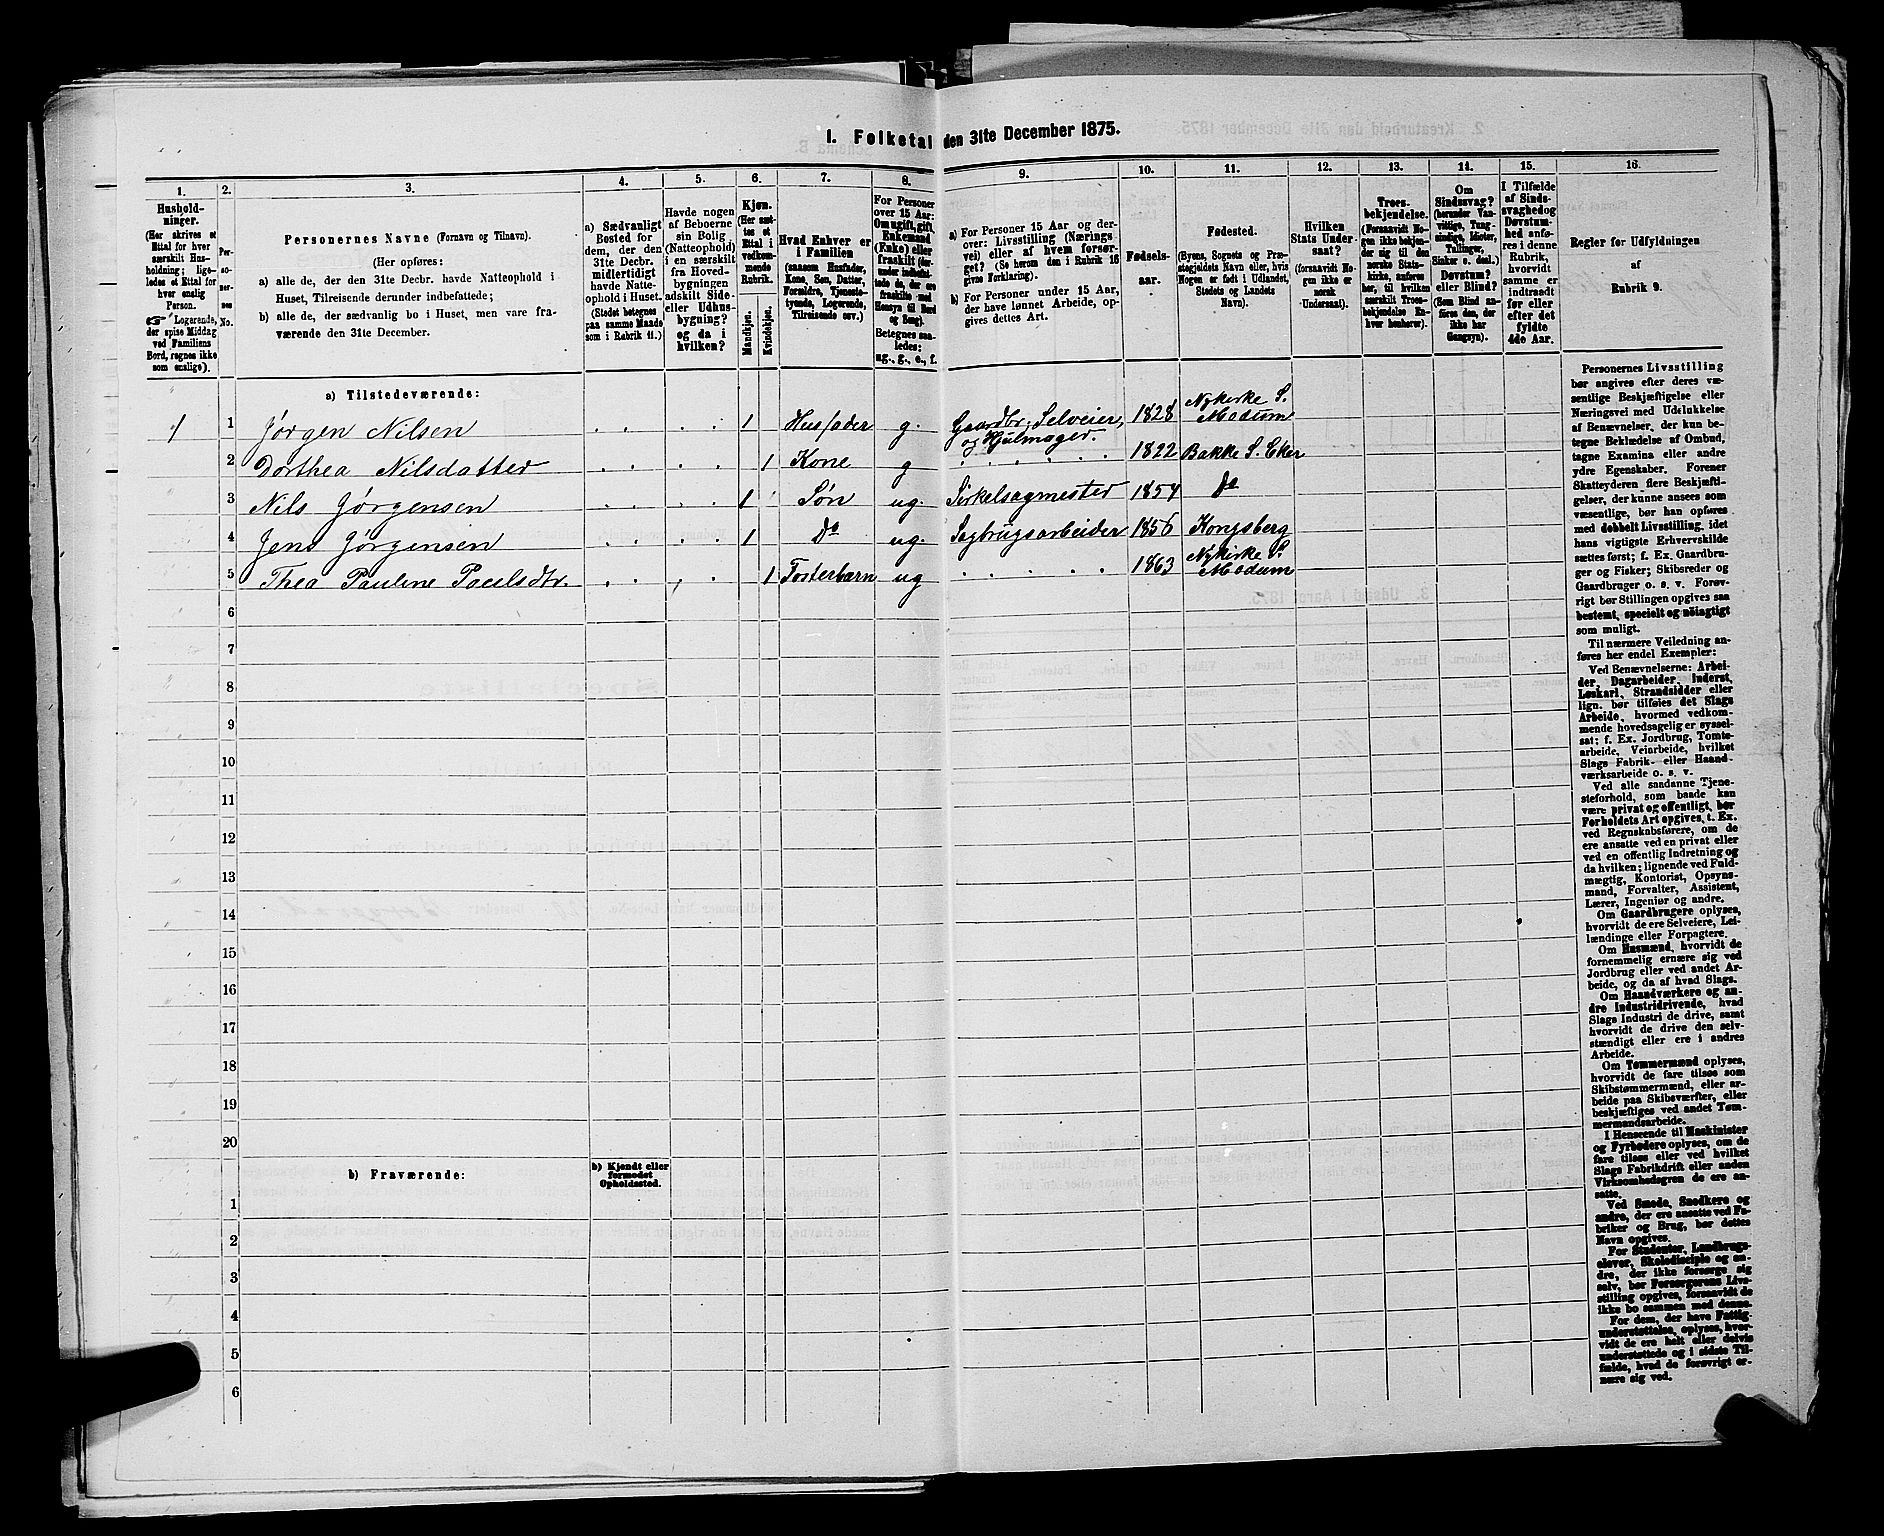 1. Folketal den 31te December 1875.
1. 2. 3. 4. 5. 6. 7. 8. 9. 10. 11. 12. 13. 14. 15. 16.
Hushold-
ninger.
(Her skrives et
Ettal for hver
særskilt Hus-
holdning; lige-
ledes et Ettal for
hver enslig
Person.
Logerende,
der spise Middag
ved Familiens
Bord, regnes ikke
som enslige).
Per-
so-
ner-
nes
No.
Personernes Navne (Fornavn og Tilnavn).
(Her opføres:
a) alle de, der den 31te Decbr. havde Natteophold i
Huset, Tilreisende derunder indbefattede;
b) alle de, der sædvanlig bo i Huset, men vare fra-
værende den 31te December.
a) Sædvanligt
Bosted for
dem, der den
31te Decbr.
midlertidigt
havde Natte-
ophold i Huset.
(Stedet betegnes
paa samme Maade
som i Rubrik 11.)
Havde nogen
af Beboerne
sin Bolig
(Natteophold)
i en særskilt
fra Hoved-
bygningen
adskilt Side-
eller Udhus-
bygning?
og da i
hvilken?
Kjøn.
(Her sæt-
tes et
Ettal i
vedkom-
mende
Rubrik.
Mandkjøn.
Kvindekjøn.
Hvad Enhver er
i Familien
(saasom Husfader,
Kone, Søn, Datter,
Forældre, Tjeneste-
tyende, Logerende,
Tilreisende osv.)
For Personer
over 15 Aar:
Om ugift, gift,
Enkemand
(Enke) eller
fraskilt (der-
under indbefat-
tede de, der ere
fraskilte med
Hensyn til Bord
og Seng).
Betegnes saa-
ledes:
ug., g., e., f.
a) For Personer 15 Aar og der-
over: Livsstilling (Nærings-
vei) eller af hvem forsør-
get? (Se herom den i Rubrik 16
givne Forklaring).
b) For Personer under 15 Aar,
der have lønnet Arbeide, op-
gives dettes Art.
Fødsels-
aar.
Fødested.
(Byens, Sognets og Præ-
stegjeldets Navn eller, hvis
Nogen er født i Udlandet,
Stedets og Landets
Navn).
Hvilken
Stats Under-
saat?
(forsaavidt No-
gen ikke er
norsk
Undersaat).
Troes-
bekjendelse.
(Forsaavidt No-
gen ikke bekjen-
der sig til den
norske Stats-
kirke, anføres
her, til hvilken
særskilt Troes-
bekjendelse En-
hver henhører).
Om
Sindssvag?
(herunder Van-
vittige, Tung-
sindige, Idioter,
Tullinger,
Sinker o. desl.)
Døvstum?
eller Blind?
(Som Blind an-
føres den, der
ikke har
Gangsyn).
I Tilfælde
af Sinds-
svaghed og
Døvstum-
hed anfø-
res i denne
Rubrik,
hvorvidt
samme er
indtraadt
før eller
efter det
fyldte
4de Aar.
Regler for Udfyldningen
af
Rubrik 9.
a) Tilstedeværende:
1 1 Jørgen Nilsen 1 Husfader g. Gaardbr., Selveier, og Hjulmager. 1828 Nykirke S. Modum
2 Dorthea Nilsdatter 1 Kone g 1822 Bakke S. Eker
3 Nils Jørgensen 1 Søn ug. Sirkelsagmester 1854 Do
4 Jens Jørgensen 1 Do ug. Sagbrugsarbeider 1856 Kongsberg
5 Thea Pauline Poulsdtr 1 Fosterbarn ug 1863 Nykirke S. Modum
6
7
8
9
10
11
12
13
14
15
16
17
18
19
20
b) Fraværende:
b) Kjendt eller
formodet
Opholdssted.
1
2
3
4
5
6
Personernes Livsstilling
bør angives efter deres væ-
sentlige Beskjæftigelse eller
Næringsvei med Udelukkelse
af Benævnelser, der kun be-
tegne Beklædelse af Ombud,
tagne Examina eller andre
ydre Egenskaber. Forener
Skatteyderen flere Beskjæfti-
gelser, der kunne ansees som
væsentlige, bør han opføres
med dobbelt Livsstilling, idet
hans vigtigste Erhvervskilde
sættes først; f. Ex. Gaardbru-
ger og Fisker; Skibsreder og
Gaardbruger o. s. v. Forøv-
rigt bør Stillingen opgives saa
bestemt, specielt og nøiagtigt
som muligt.
Til nærmere Veiledning an-
føres her endel Exempler:
Ved Benævnelserne: Arbei-
der, Dagarbeider, Inderst,
Løskarl, Strandsidder eller
lign. bør tilføies det Slags
Arbeide, hvormed vedkom-
mende hovedsagelig er syssel-
sat; f. Ex. Jordbrug, Tomte-
arbeide, Veiarbeide, hvilket
Slags Fabrik- eller Haand-
værksarbeide o. s. v.
Ved alle saadanne Tjene-
steforhold, som baade kan
være privat og offentligt, bør
Forholdets Art opgives, t. Ex.
ved Regnskabsførere, om de
ere ansatte ved en privat eller
ved en offentlig Indretning og
da hvilken; lignende ved Fuld-
mægtig, Kontorist, Opsyns-
mand, Forvalter, Assistent,
Lærer, Ingeniør og andre.
Om Gaardbrugere oplyses,
hvorvidt de ere Selveiere, Lei-
lændinge eller Forpagtere.
Om Husmænd, hvorvidt de
fornemmelig ernære sig ved
Jordbrug eller ved andet Ar-
beide, og da af hvad Slags.
Om Haandværkere og an-
dre Industridrivende, hvad
Slags Industri de drive, samt
hvorvidt de drive den selv-
stændigt eller ere i andres
Arbeide.
Om Tømmermænd oplyses,
hvorvidt de fare tilsøs som
Skibstømmermænd, eller ar-
beide paa Skibsværfter, eller
beskjæftiges ved andet Tøm-
mermandsarbeide.
I Henseende til Maskinister
og Fyrbødere oplyses, om de
fare tilsøs eller ved hvilket
Slags Fabrikdrift eller anden
Virksomhedsgren de ere an-
satte.
Ved Smede, Snedkere og
andre, der ere ansatte ved Fa-
briker og Brug, bør dettes
Navn opgives.
For Studenter, Landbrugs-
elever, Skoledisciple og an-
dre, der ikke forsørge sig
selv, bør Forsørgerens Livs-
stilling opgives, forsaavidt de
ikke bo sammen med denne.
For dem, der have Fattig-
understøttelse, oplyses, hvor-
vidt de ere helt eller delvis
understøttede og i sidste Til-
fælde, hvad de forøvrigt er-
nære sig ved.